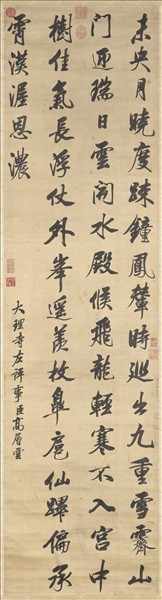 未央月曉度疎鐘鳳輦時巡出九重雪霽山
門迎瑞日雲開水殿候飛龍輕寒不入宮中
樹佳氣長浮仗外峯遥羨枚臯扈仙蹕偏承
霄漢渥恩濃
大理寺左評事臣高層雲